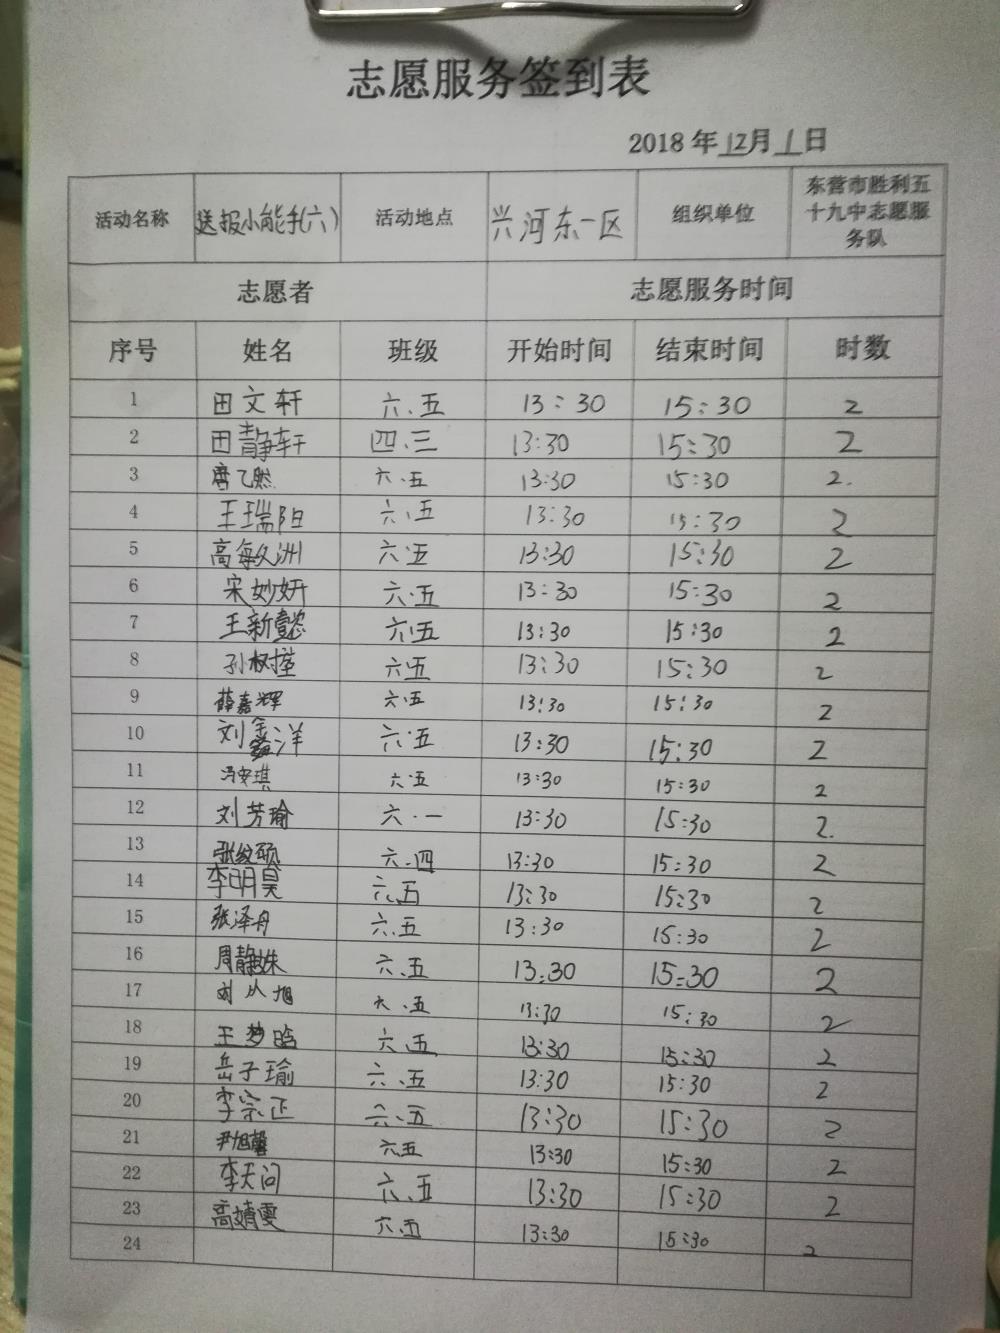 志愿服务签到表
2018 年 12 月 1 日
活动名称 送报小能手(六) 活动地点 兴河东一区 组织单位 东营市胜利五十九中志愿服务队
志愿者 志愿服务时间
序号 姓名 班级 开始时间 结束时间 时数
1 田文轩 六.五 13:30 15:30 2
2 田静轩 四.三 13:30 15:30 2
3 唐乙然 六.五 13:30 15:30 2.
4 王瑞阳 六.五 13:30 15:30 2
5 高敏洲 六.五 13:30 15:30 2
6 宋妙妍 六.五 13:30 15:30 2
7 王新懿 六.五 13:30 15:30 2
8 孙树莛 六.五 13:30 15:30 2
9 薛嘉辉 六.五 13:30 15:30 2
10 刘鑫洋 六.五 13:30 15:30 2
11 冯安琪 六.五 13:30 15:30 2
12 刘芳瑜 六.一 13:30 15:30 2.
13 张纹硕 六.四 13:30 15:30 2
14 李明昊 六.五 13:30 15:30 2
15 张泽舟 六.五 13:30 15:30 2
16 周静姝 六.五 13:30 15:30 2
17 刘从旭 六.五 13:30 15:30 2
18 王梦晗 六.五 13:30 15:30 2
19 岳子瑜 六.五 13:30 15:30 2
20 李宗正 六.五 13:30 15:30 2
21 尹旭馨 六.五 13:30 15:30 2
22 李天问 六.五 13:30 15:30 2
23 高婧雯 六.五 13:30 15:30 2
24